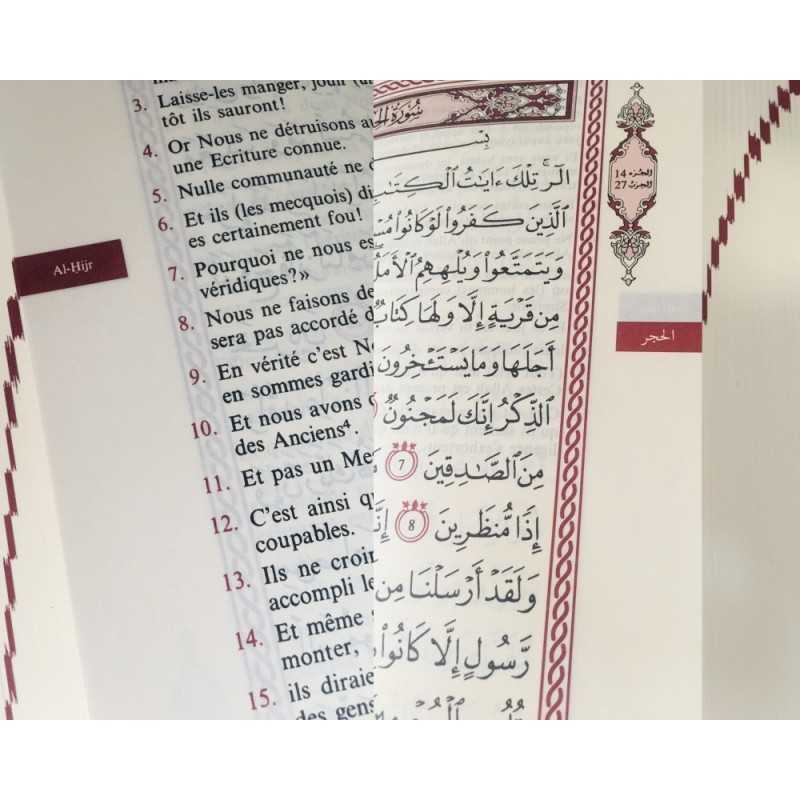 Al-Ḥijr
3. Laisse-les manger, jouir
tôt ils sauront!
4. Or Nous ne détruisons
une Ecriture connue.
5. Nulle communauté ne
6. Et ils (les mecquois)
es certainement fou!
7. Pourquoi ne nous
véridiques?»
8. Nous ne faisons
sera pas accordé
9. En vérité c'est
en sommes
10. Et nous avons
des Anciens⁴.
11. Et pas un
12. C'est ainsi
coupables.
13. Ils ne
accompli
14. Et même
monter,
15. ils
des
سُورَةُ
الٓرۚ تِلۡكَ ءَايَٰتُ
ٱلَّذِينَ كَفَرُواْ لَوۡ كَانُواْ
وَيَتَمَتَّعُواْ وَيُلۡهِهِمُ
مِن قَرۡيَةٍ إِلَّا وَلَهَا
أَجَلَهَا وَمَا يَسۡتَـٔۡخِرُونَ
ٱلذِّكۡرُ إِنَّكَ لَمَجۡنُونٞ
مِنَ ٱلصَّٰدِقِينَ 7
إِذٗا مُّنظَرِينَ 8
وَلَقَدۡ أَرۡسَلۡنَا مِن
رَّسُولٍ إِلَّا كَانُواْ
الجزء 14
الحزب 27
الحجر